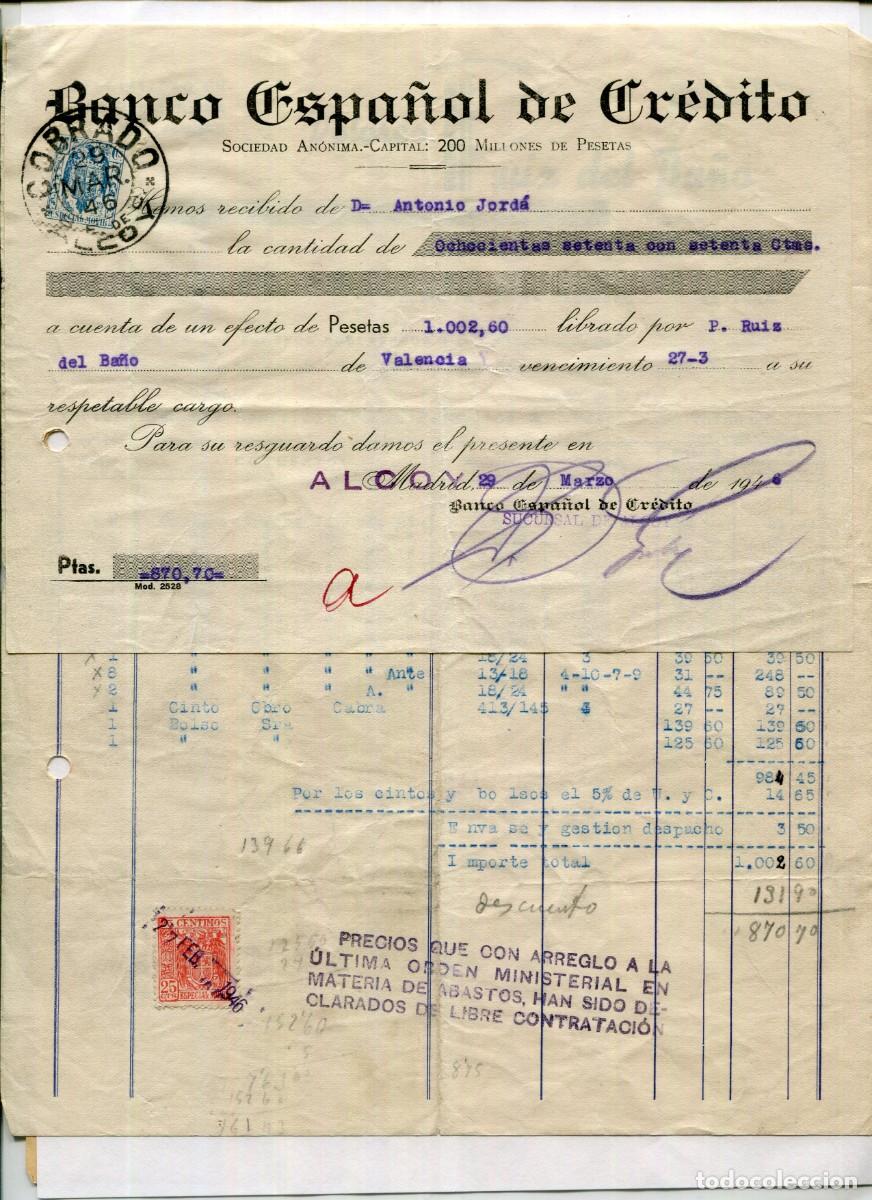 Banco Español de Crédito
Sociedad Anónima.-Capital: 200 Millones de Pesetas
COBRADO
29
MAR.
46
ALCOY
Hemos recibido de D= Antonio Jordá
la cantidad de Ochocientas setenta con setenta Ctms.
a cuenta de un efecto de Pesetas 1.002,60 librado por P. Ruiz
del Baño de Valencia vencimiento 27-3 a su
respetable cargo.
Para su resguardo damos el presente en
ALCOY Madrid, 29 de Marzo de 1946
Banco Español de Crédito
SUCURSAL DE
Ptas. =870,70=
Mod. 2528
a
1 " " " " " 18/24 3 39 50 39 50
x8 " " " " Ante 13/18 4-10-7-9 31 -- 248 --
x2 " " " A. " 18/24 " " 44 75 89 50
1 Cinto Cbro Cabra 413/145 27 -- 27 --
1 Bolso Sra 139 60 139 60
1 " " 125 60 125 60
984 45
Por los cintos y bo lsos el 5% de U. y C. 14 65
E nva se y gestion despacho 3 50
I mporte total 1.002 60
139 66
131 90
descuento
870 70
CÉNTIMOS
25
27 FEB. 1946
PRECIOS QUE CON ARREGLO A LA
ÚLTIMA ORDEN MINISTERIAL EN
MATERIA DE ABASTOS, HAN SIDO DE-
CLARADOS DE LIBRE CONTRATACIÓN
152'60
8'75
todocoleccion